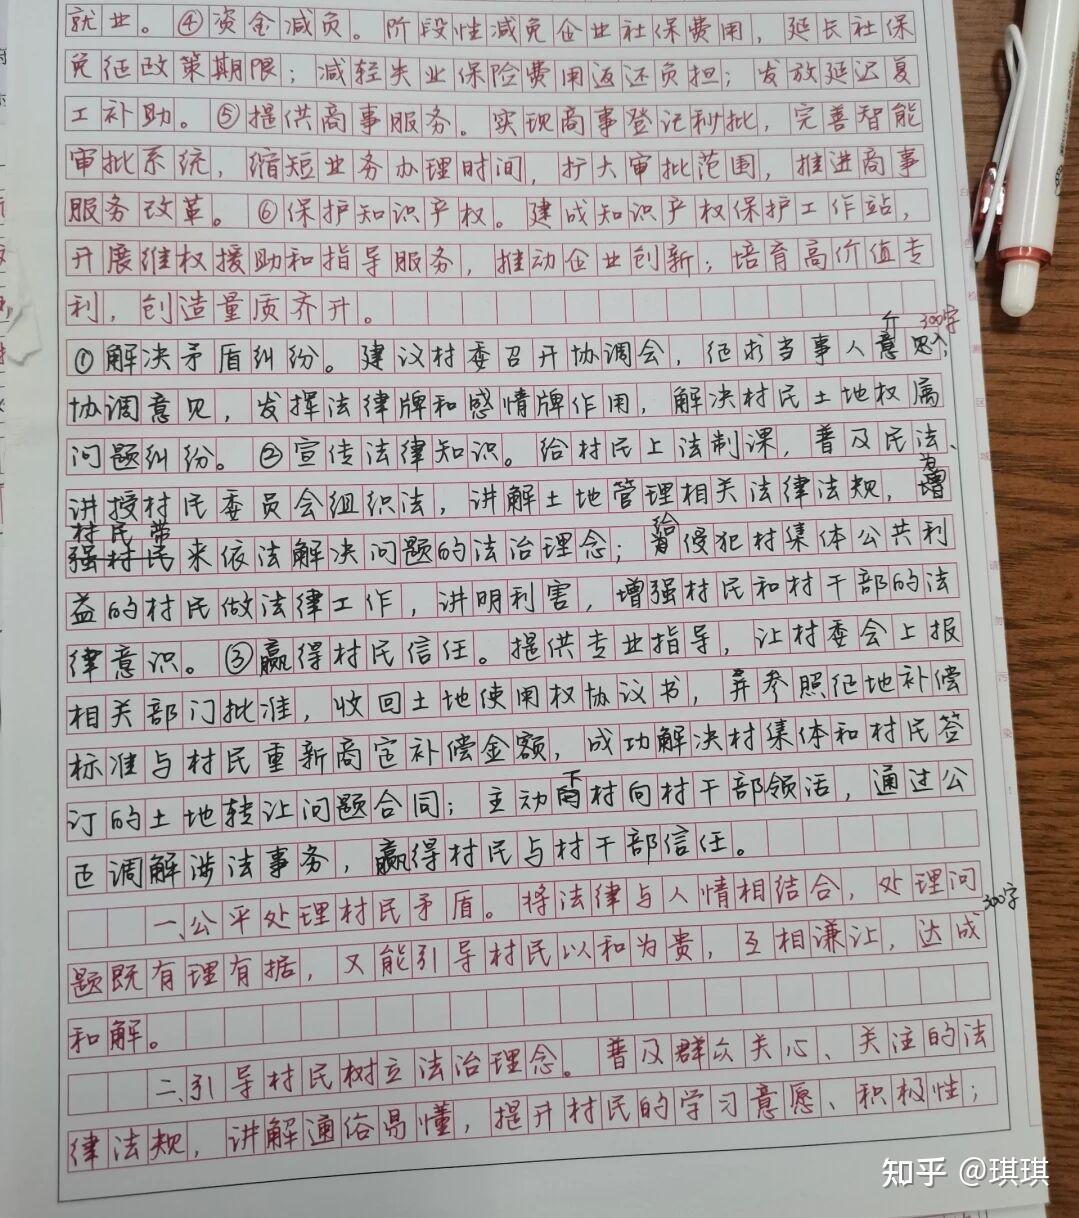 就业。④资金减负。阶段性减免企业社保费用，延长社保
免征政策期限；减轻失业保险费用返还负担；发放延迟复
工补助。⑤提供商事服务。实现商事登记秒批，完善智能
审批系统，缩短业务办理时间，扩大审批范围，推进商事
服务改革。⑥保护知识产权。建成知识产权保护工作站，
开展维权援助和指导服务，推动企业创新；培育高价值专
利，创造量质齐升。
300字
①解决矛盾纠纷。建议村委召开协调会，征求当事人意见，
协调意见，发挥法律牌和感情牌作用，解决村民土地权属
问题纠纷。②宣传法律知识。给村民上法制课，普及民法、
讲授村民委员会组织法，讲解土地管理相关法律法规，为
村民带来依法解决问题的法治理念；给侵犯村集体公共利
益的村民做法律工作，讲明利害，增强村民和村干部的法
律意识。③赢得村民信任。提供专业指导，让村委会上报
相关部门批准，收回土地使用权协议书，并参照征地补偿
标准与村民重新商定补偿金额，成功解决村集体和村民签
订的土地转让问题合同；主动下村向村干部领活，通过公
正调解涉法事务，赢得村民与村干部信任。
一、公平处理村民矛盾。将法律与人情相结合，处理问
300字
题既有理有据，又能引导村民以和为贵，互相谦让，达成
和解。
二、引导村民树立法治理念。普及群众关心、关注的法
律法规，讲解通俗易懂，提升村民的学习意愿、积极性；
知乎 @琪琪